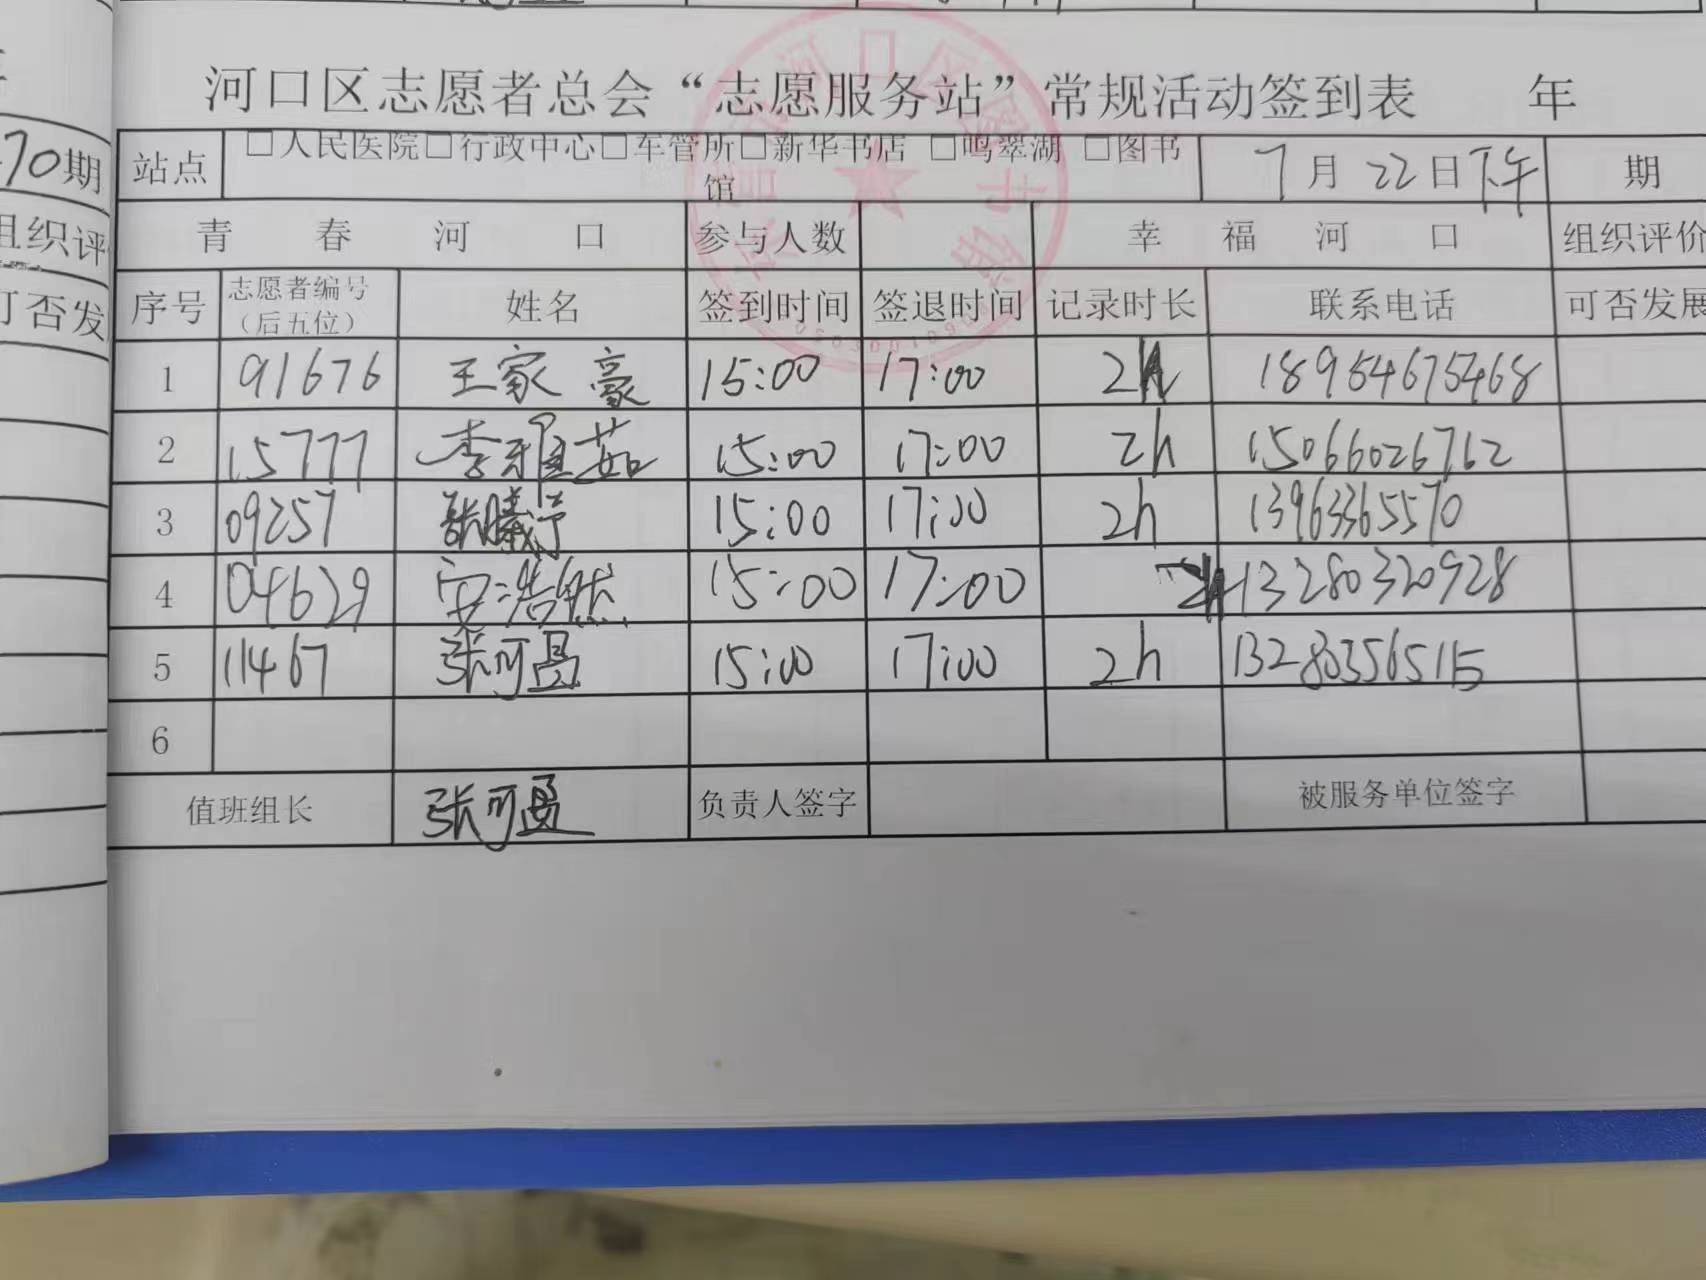 河口区志愿者总会“志愿服务站”常规活动签到表 年
70期
站点 □人民医院□行政中心□车管所□新华书店 □鸣翠湖 □图书馆 7月22日下午 期
组织评
青春河口 参与人数 幸福河口 组织评价
可否发
序号 志愿者编号（后五位） 姓名 签到时间 签退时间 记录时长 联系电话 可否发展
1 91676 王家豪 15:00 17:00 2h 18954675468
2 15777 李雅茹 15:00 17:00 2h 15066026762
3 09257 张曦予 15:00 17:00 2h 13963365570
4 04629 安浩然 15:00 17:00 2h 13280320928
5 11467 张可 15:00 17:00 2h 13280356515
6
值班组长 张可 负责人签字 被服务单位签字